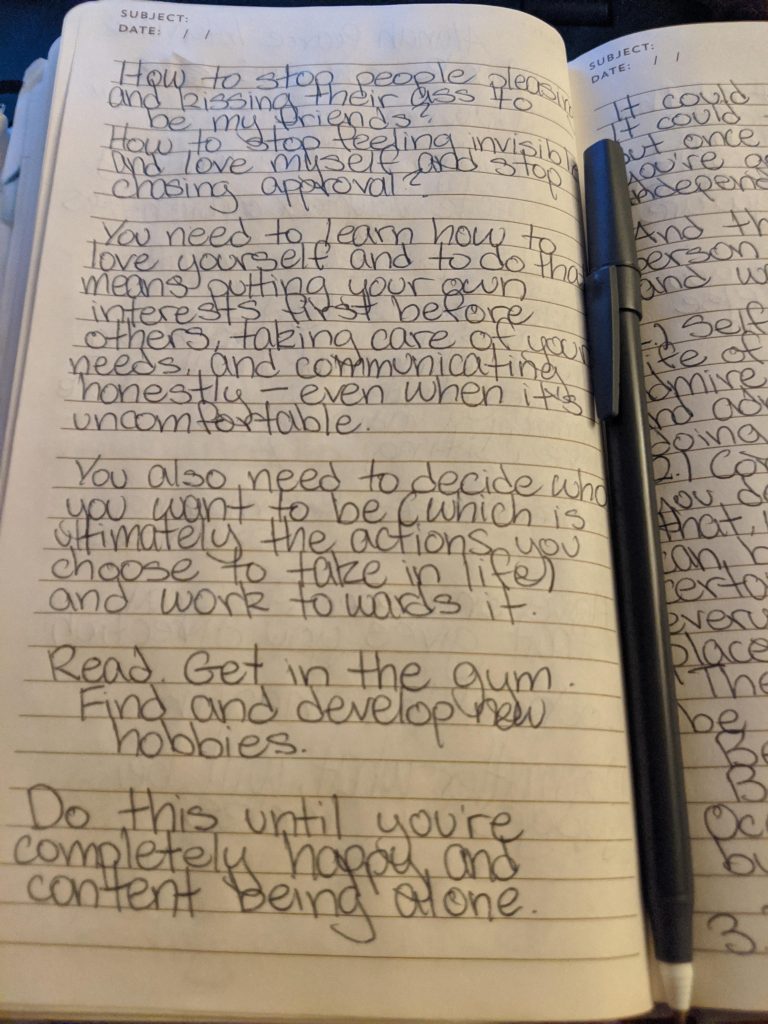 SUBJECT:
DATE: / /
How to stop people pleasing
and kissing their ass to
be my friends?
How to stop feeling invisible
and love myself and stop
chasing approval?
You need to learn how to
love yourself and to do that
means putting your own
interests first before
others, taking care of your
needs, and communicating
honestly – even when it's
uncomfortable.
You also need to decide who
you want to be (which is
ultimately the actions you
choose to take in life)
and work towards it.
Read. Get in the gym.
Find and develop new
hobbies.
Do this until you're
completely happy and
content being alone.
SUBJECT:
DATE: / /
It could
It could
but once
you're
And
person
and
Self
life of
doing
2.)
you
that,
can
every
place
The
be
3.